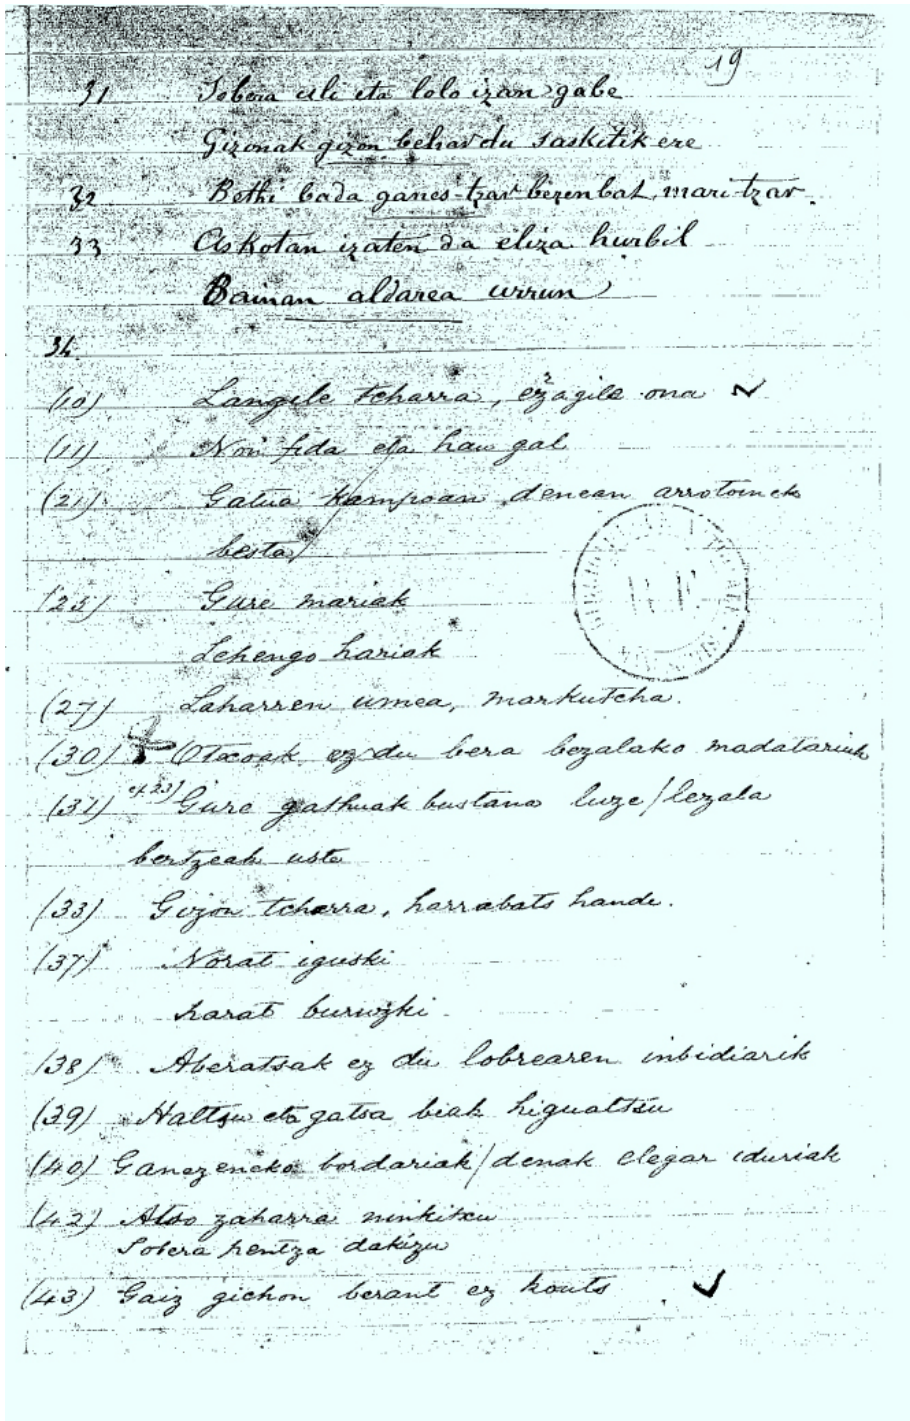 19
31 Sobera uli eta lolo izan gabe
Gizonak gizon behar du saskitik ere
32 Bethi bada ganes-tzar bezenbat mari tzar.
33 Askotan izaten da eliza hurbil
Bainan aldarea urrun
34
(10) Langile tcharra, ezagile ona ✓
(11) Non fida eta han gal
(21) Gatua kampoan denean arrotoinek
besta
(25) Gure mariak
Lehengo hariak
(27) Laharren umea, markutcha.
(30) Otsoak ez du bera bezalako madatariak
(31) Gure gathuak bustana luze / lezala
bertzeak uste
(33) Gizon tcharra, harrabats handi.
(37) Norat iguski
harat buruzki
(38) Aberatsak ez du lobrearen inbidiarik
(39) Haltsu eta gatsa biak higualtsu
(40) Ganezeneko bordariak / denak elegar iduriak
(42) Atso zaharra
Sobera dakizu
(43) Gaiz gichon berant ez kouts ✓